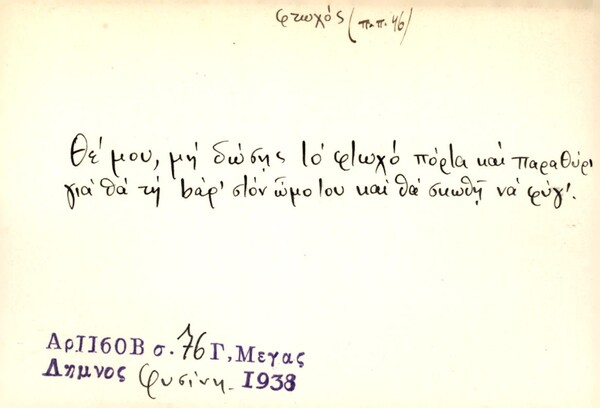 φτωχός (π.π. 46)
Θέ μου, μή δώσης τό φτωχό πόρτα καί παραθύρι
γιά θά τή βάρ' στόν ὦμο του καί θά σκωθῇ νά φύγ'.
Αρ 1160Β σ. 76 Γ, Μεγας
Λημνος Φυσίνη 1938